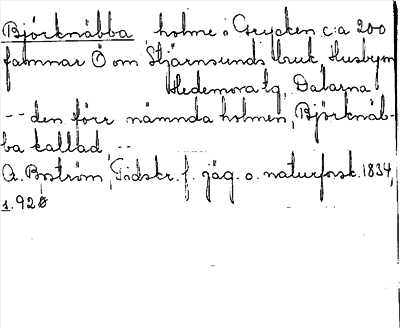 Björknäbba holme i Grycken c:a 200
famnar Ö om Stjärnsunds bruk Husbym
Hedemoratg, Dalarna
-- den förr nämnda holmen, Björknäb-
ba kallad, --
A. Boström, Tidskr. f. jäg. o. naturforsk. 1834,
1.928